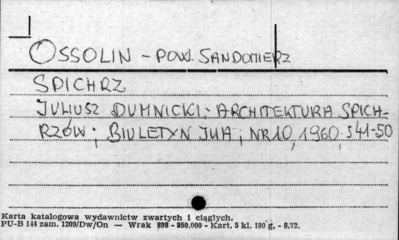 OSSOLIN - POW. SANDOMIERZ
SPICHRZ
JULIUSZ DUMNICKI: ARCHITEKTURA SPICH-
RZÓW; BIULETYN IUA, NR 10, 1960, S 41-50
Karta katalogowa wydawnictw zwartych i ciągłych.
PU-B 144 zam. 1209/Dw/On — Wrak 898 - 950.000 - Kart. 5 kl. 180 g. - 8.72.